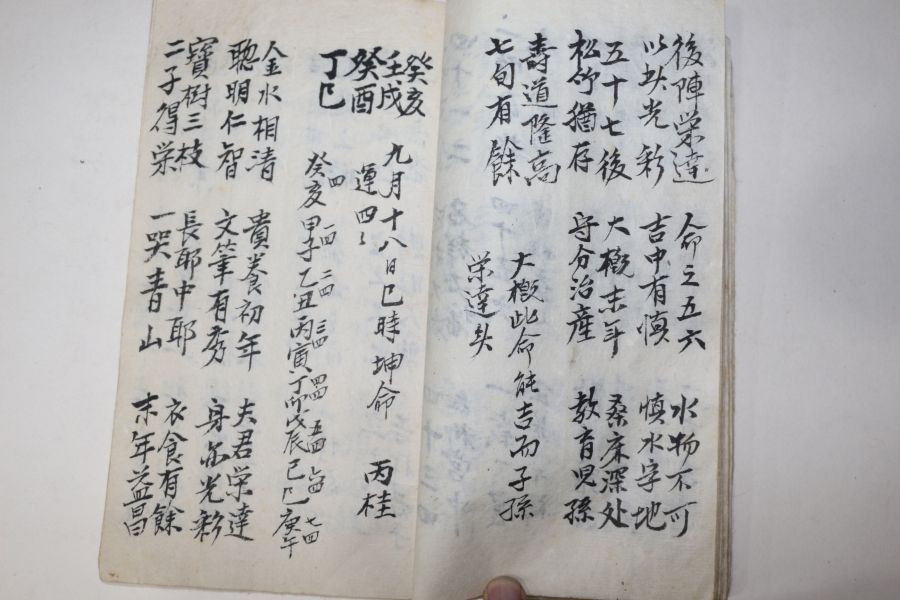 後陣榮達 命之五六 水物不可
以此光彩 吉中有慎 慎水字地
五十七後 大概末年 桑床深处
松竹猶存 守分治產 教育児孫
壽道隆高 大概此命能吉而子孫
七旬有餘 榮達矣
癸亥
壬戌 九月十八日巳時坤命 丙桂
癸酉 運四
丁巳
癸亥 甲子 乙丑 丙寅 丁卯 戊辰 己巳 庚午
四 一四 二四 三四 四四 五四 六四 七四
金水相清 貴養初年 夫君榮達
聰明仁智 文筆有秀 身命光彩
寶樹三枝 長耶中耶 衣食有餘
二子得栄 一哭青山 末年益昌